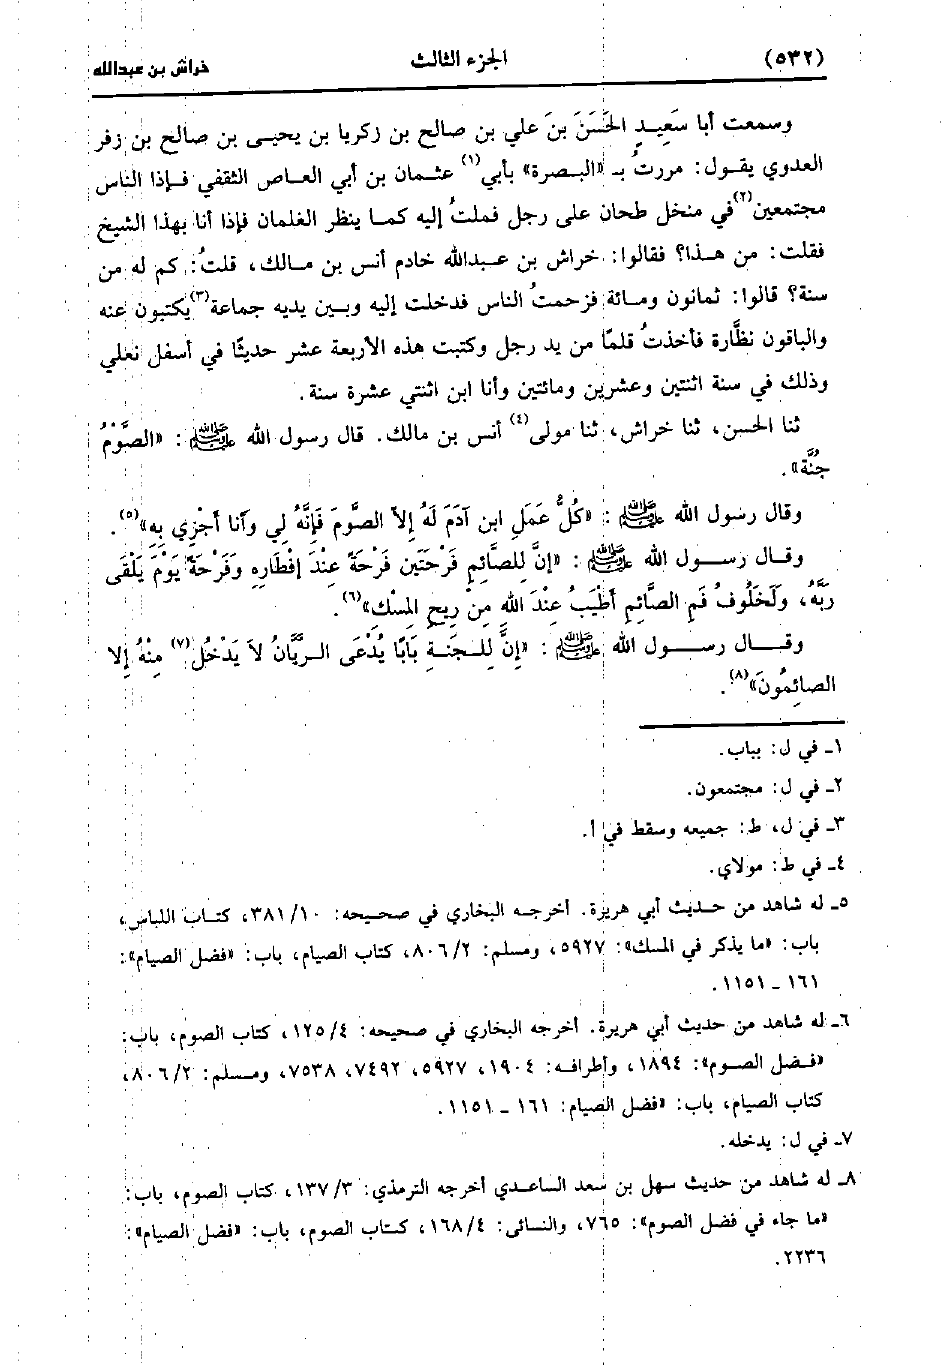 (٥٣٢) الجزء الثالث خراش بن عبدالله
وسمعت أبا سَعِيدٍ الحَسَنَ بنَ علي بن صالح بن زكريا بن يحيى بن صالح بن زفر
العدوي يقول: مررتُ بـ «البصرة» بأبي(١) عثمان بن أبي العاص الثقفي فإذا الناس
مجتمعين(٢) في منخل طحان على رجل فملتُ إليه كما ينظر الغلمان فإذا أنا بهذا الشيخ
فقلت: من هذا؟ فقالوا: خراش بن عبدالله خادم أنس بن مالك، قلتُ: كم له من
سنة؟ قالوا: ثمانون ومائة فزحمتُ الناس فدخلت إليه وبين يديه جماعة(٣) يكتبون عنه
والباقون نظَّارة فأخذتُ قلمًا من يد رجل وكتبت هذه الأربعة عشر حديثًا في أسفل نعلي
وذلك في سنة اثنتين وعشرين ومائتين وأنا ابن اثنتي عشرة سنة.
ثنا الحسن، ثنا خراش، ثنا مولى(٤) أنس بن مالك. قال رسول الله ﷺ: «الصَّوْمُ
جُنَّة».
وقال رسول الله ﷺ: «كُلُّ عَمَلِ ابن آدَمَ لَهُ إلاَّ الصَّومَ فَإِنَّهُ لِي وأنا أجْزِي بِهِ»(٥).
وقال رسول الله ﷺ: «إنَّ لِلصَّائِمِ فَرْحَتَين فَرْحَةً عِنْدَ إفْطَارِهِ وَفَرْحَةً يَوْمَ يَلْقَى
رَبَّهُ، وَلَخَلُوفُ فَمِ الصَّائِمِ أطْيَبُ عِنْدَ اللهِ مِنْ رِيحِ المِسْكِ»(٦).
وقال رسول الله ﷺ: «إنَّ لِلجَنةِ بَابًا يُدْعَى الرَّيَّانُ لاَ يَدْخُلُ(٧) مِنْهُ إلا
الصائِمُونَ»(٨).
١ـ في ل: بباب.
٢ـ في ل: مجتمعون.
٣ـ في ل، ط: جميعه وسقط في أ.
٤ـ في ط: مولاي.
٥ـ له شاهد من حديث أبي هريرة. أخرجه البخاري في صحيحه: ٣٨١/١٠، كتاب اللباس،
باب: «ما يذكر في المسك»: ٥٩٢٧، ومسلم: ٨٠٦/٢، كتاب الصيام، باب: «فضل الصيام»:
١٦١ ـ ١١٥١.
٦ـ له شاهد من حديث أبي هريرة. أخرجه البخاري في صحيحه: ١٢٥/٤، كتاب الصوم، باب:
«فضل الصوم»: ١٨٩٤، وأطرافه: ١٩٠٤، ٥٩٢٧، ٧٤٩٢، ٧٥٣٨، ومسلم: ٨٠٦/٢،
كتاب الصيام، باب: «فضل الصيام: ١٦١ ـ ١١٥١.
٧ـ في ل: يدخله.
٨ـ له شاهد من حديث سهل بن سعد الساعدي أخرجه الترمذي: ١٣٧/٣، كتاب الصوم، باب:
«ما جاء في فضل الصوم»: ٧٦٥، والنسائى: ١٦٨/٤، كتاب الصوم، باب: «فضل الصيام»:
٢٢٣٦.